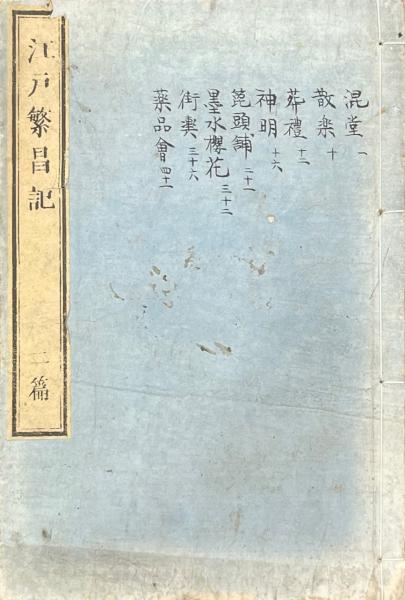 混堂 一
散楽 十
葬禮 十二
神明 十六
箆頭舖 二十一
墨水櫻花 三十二
街輿 三十六
薬品會 四十一
江戸繁昌記 二篇